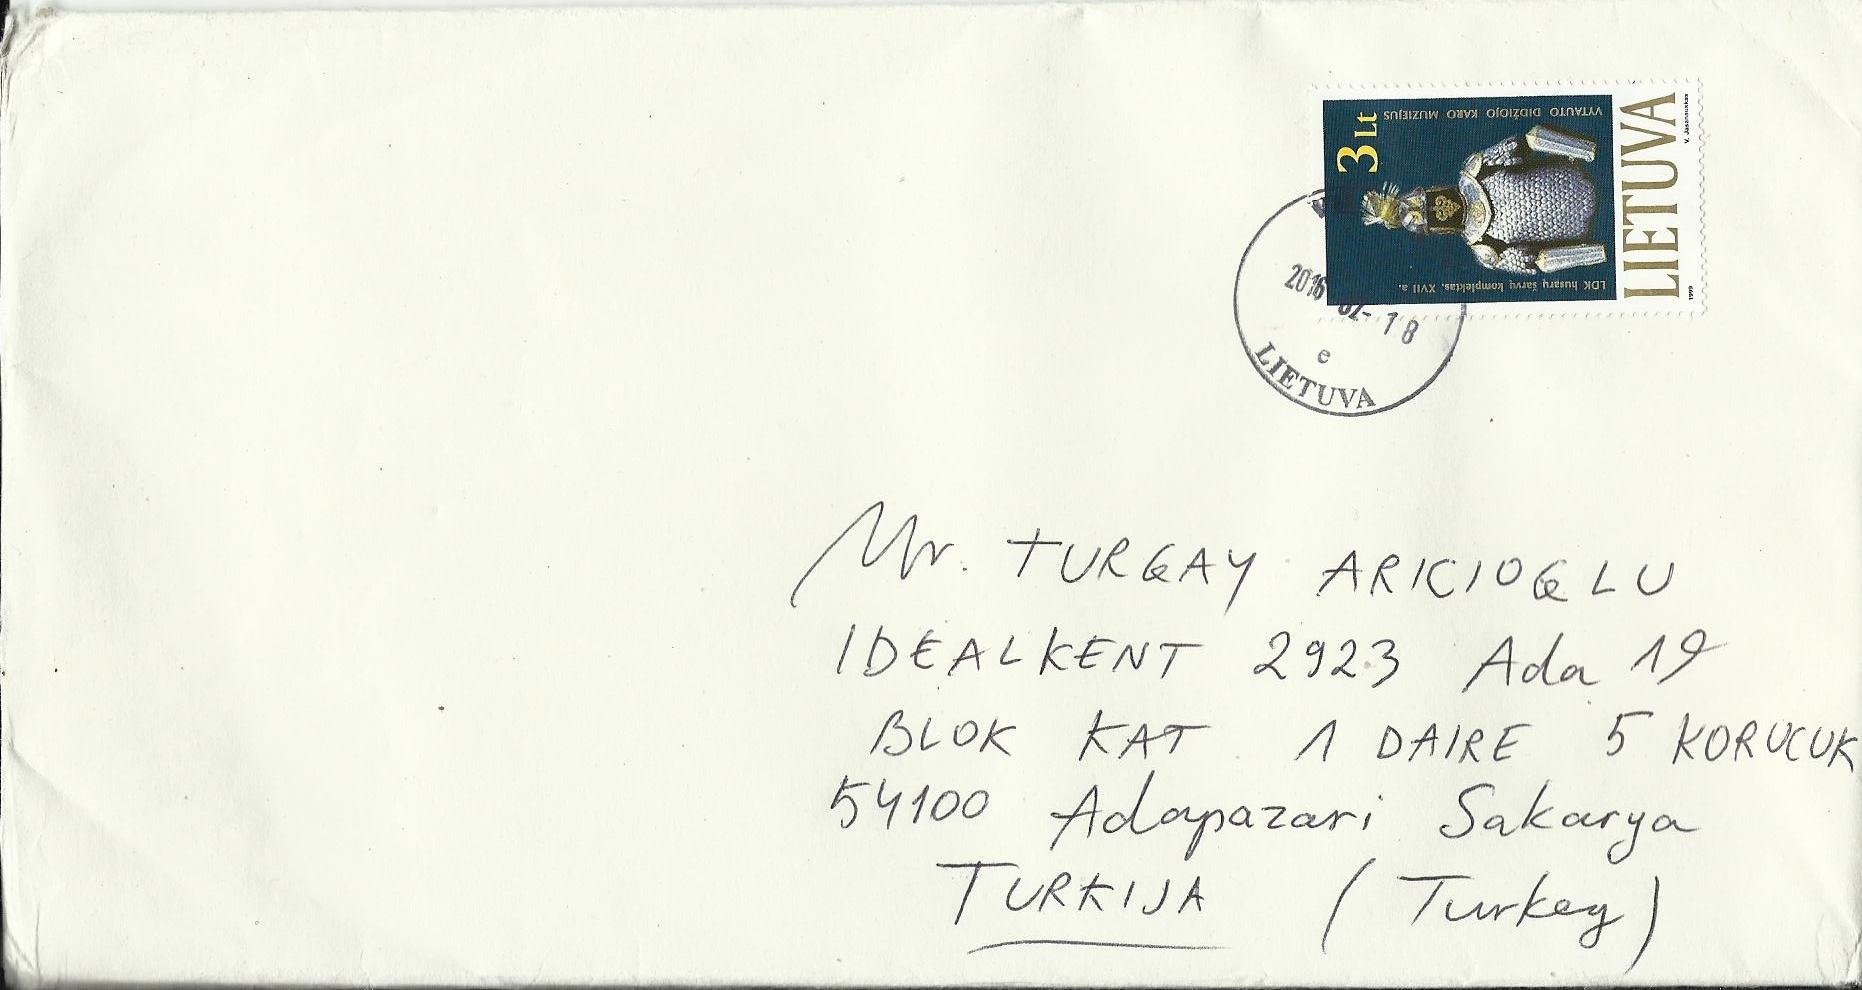 3 Lt
VYTAUTO DIDŽIOJO KARO MUZIEJUS
LDK husarų šarvų komplektas. XVII a.
LIETUVA
1999
V. Jasanauskas
2016-02-18
e
LIETUVA
Mr. TURGAY ARICIOGLU
IDEALKENT 2923 Ada 19
BLOK KAT 1 DAIRE 5 KORUCUK
54100 Adapazari Sakarya
TURKIJA (Turkey)